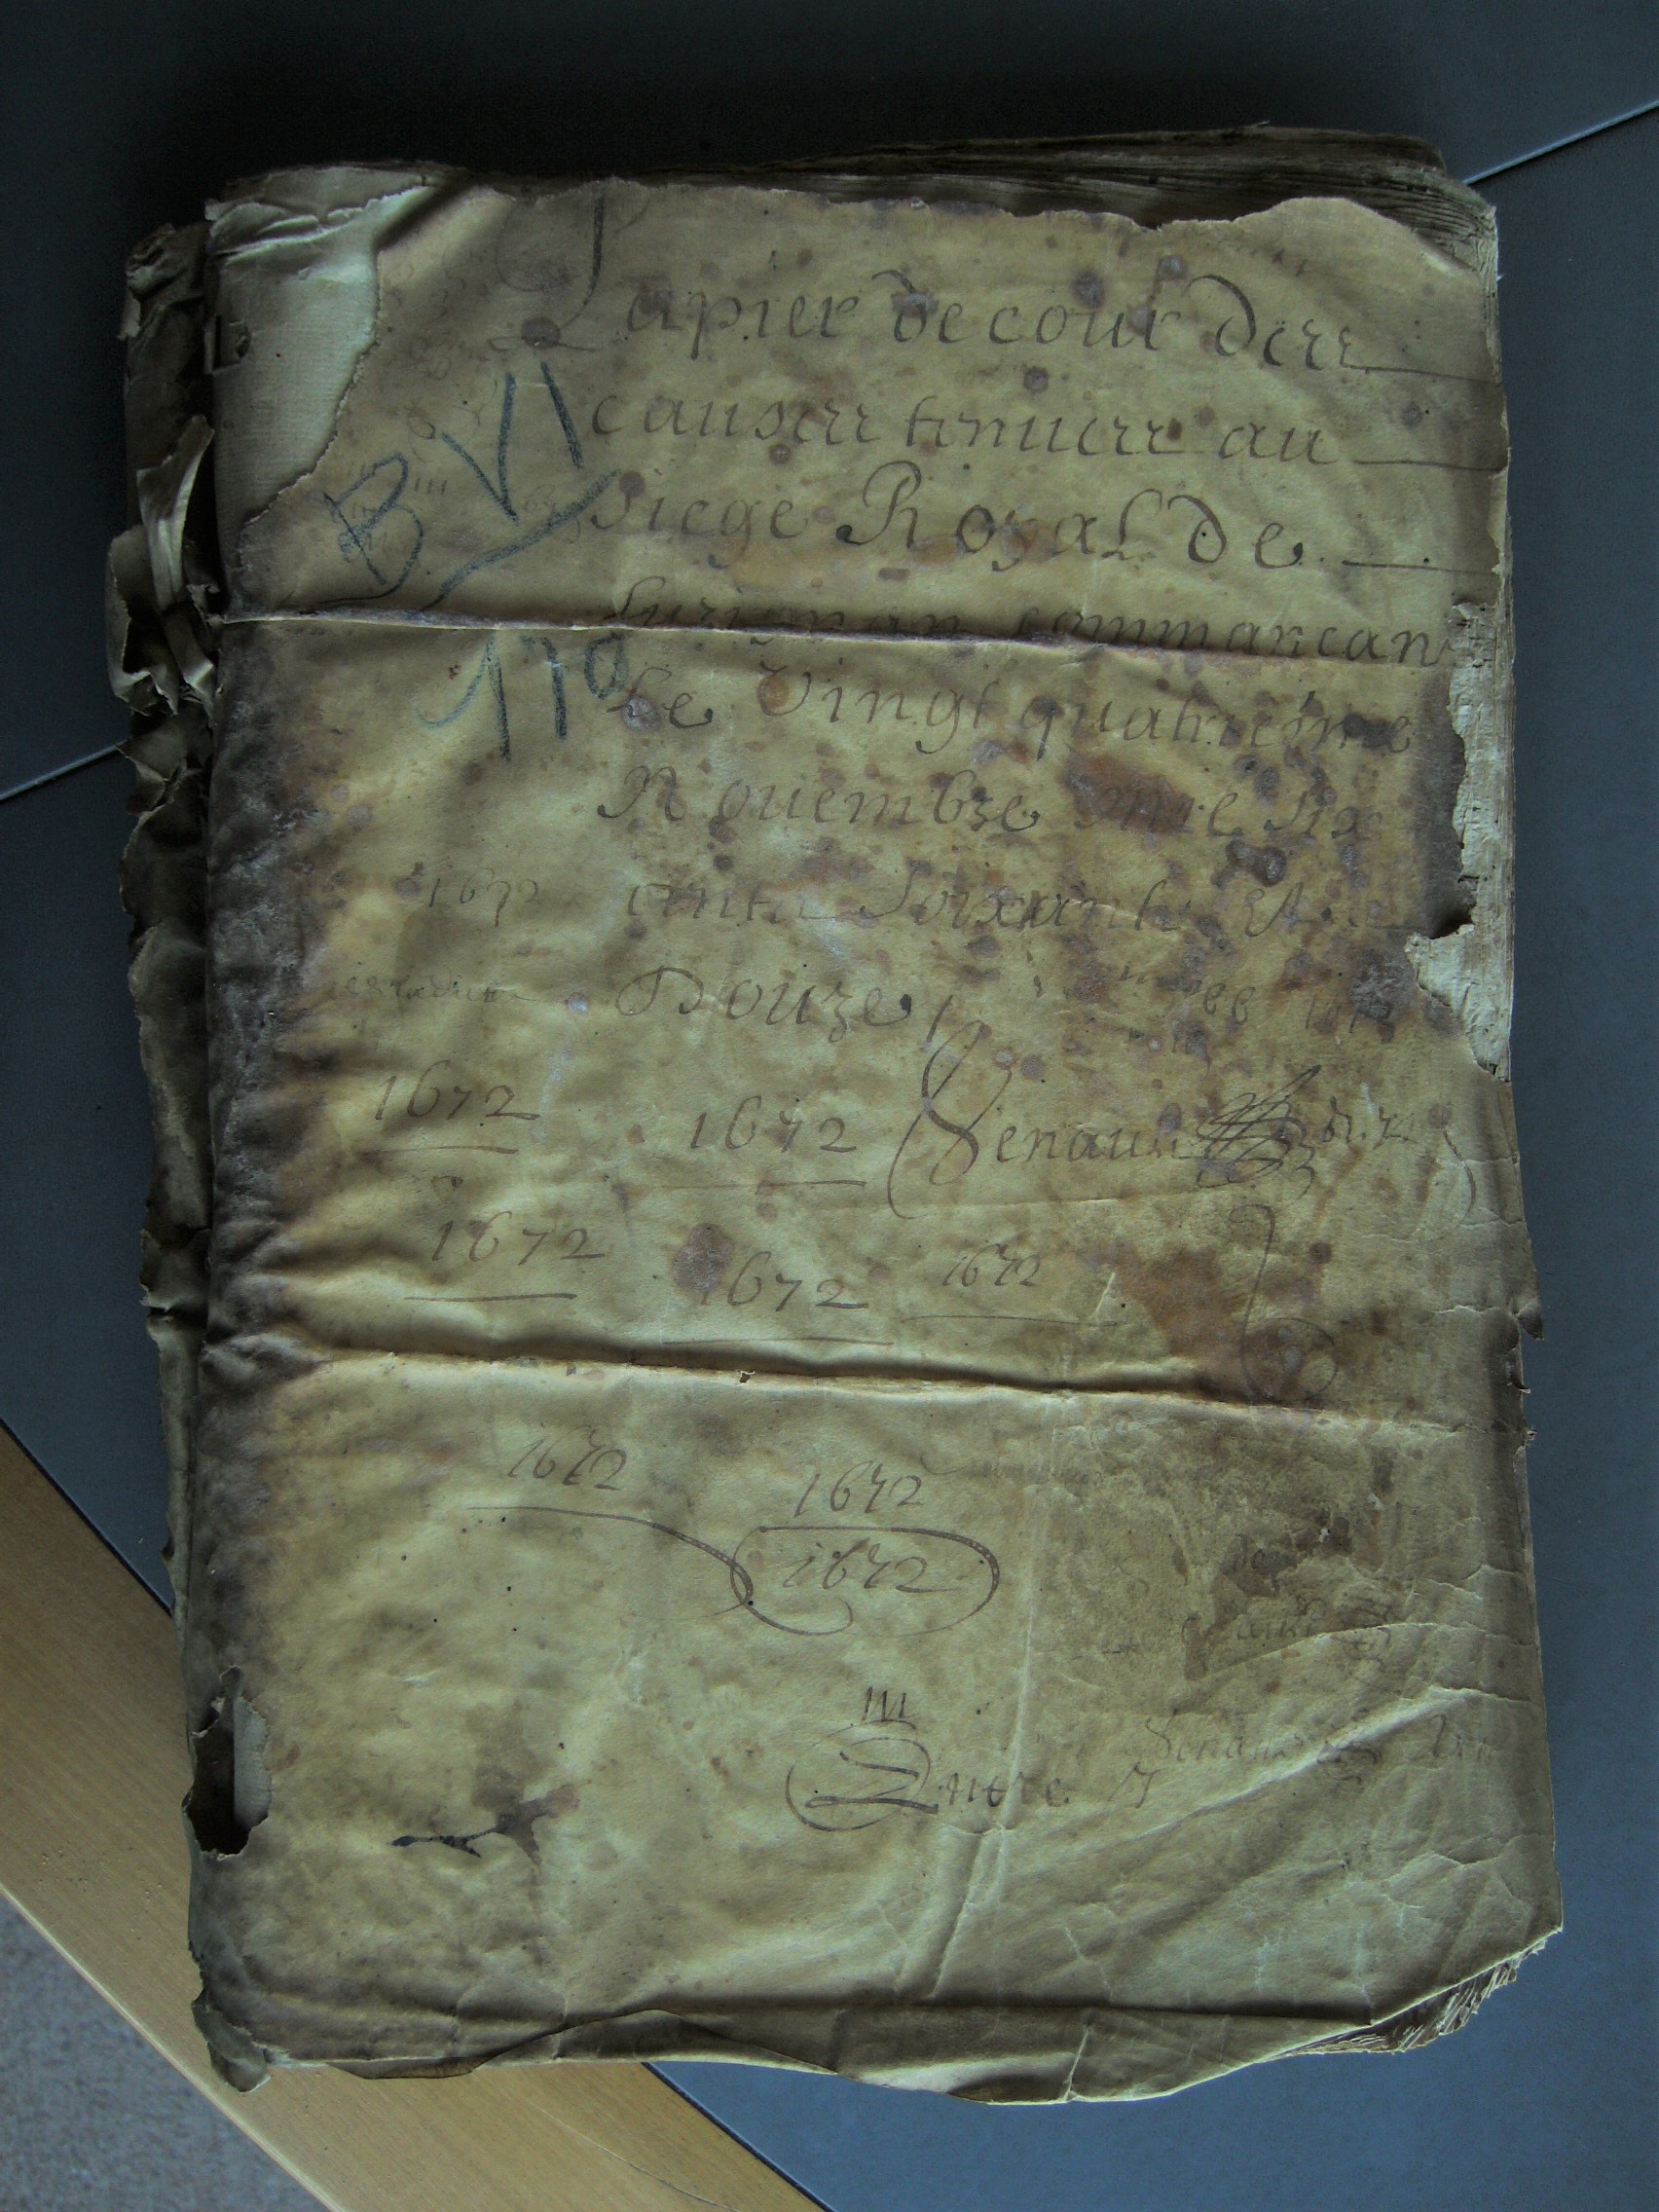 Papier de cour des
causes tenues au
siege Royal de
Lusignan commancan
Le Vingt quatrieme
Nouembre mil six
cents soixante et
Douze
B VI
170
1672
1672
1672
1672
1672
1672
1672
1672
III
Entre